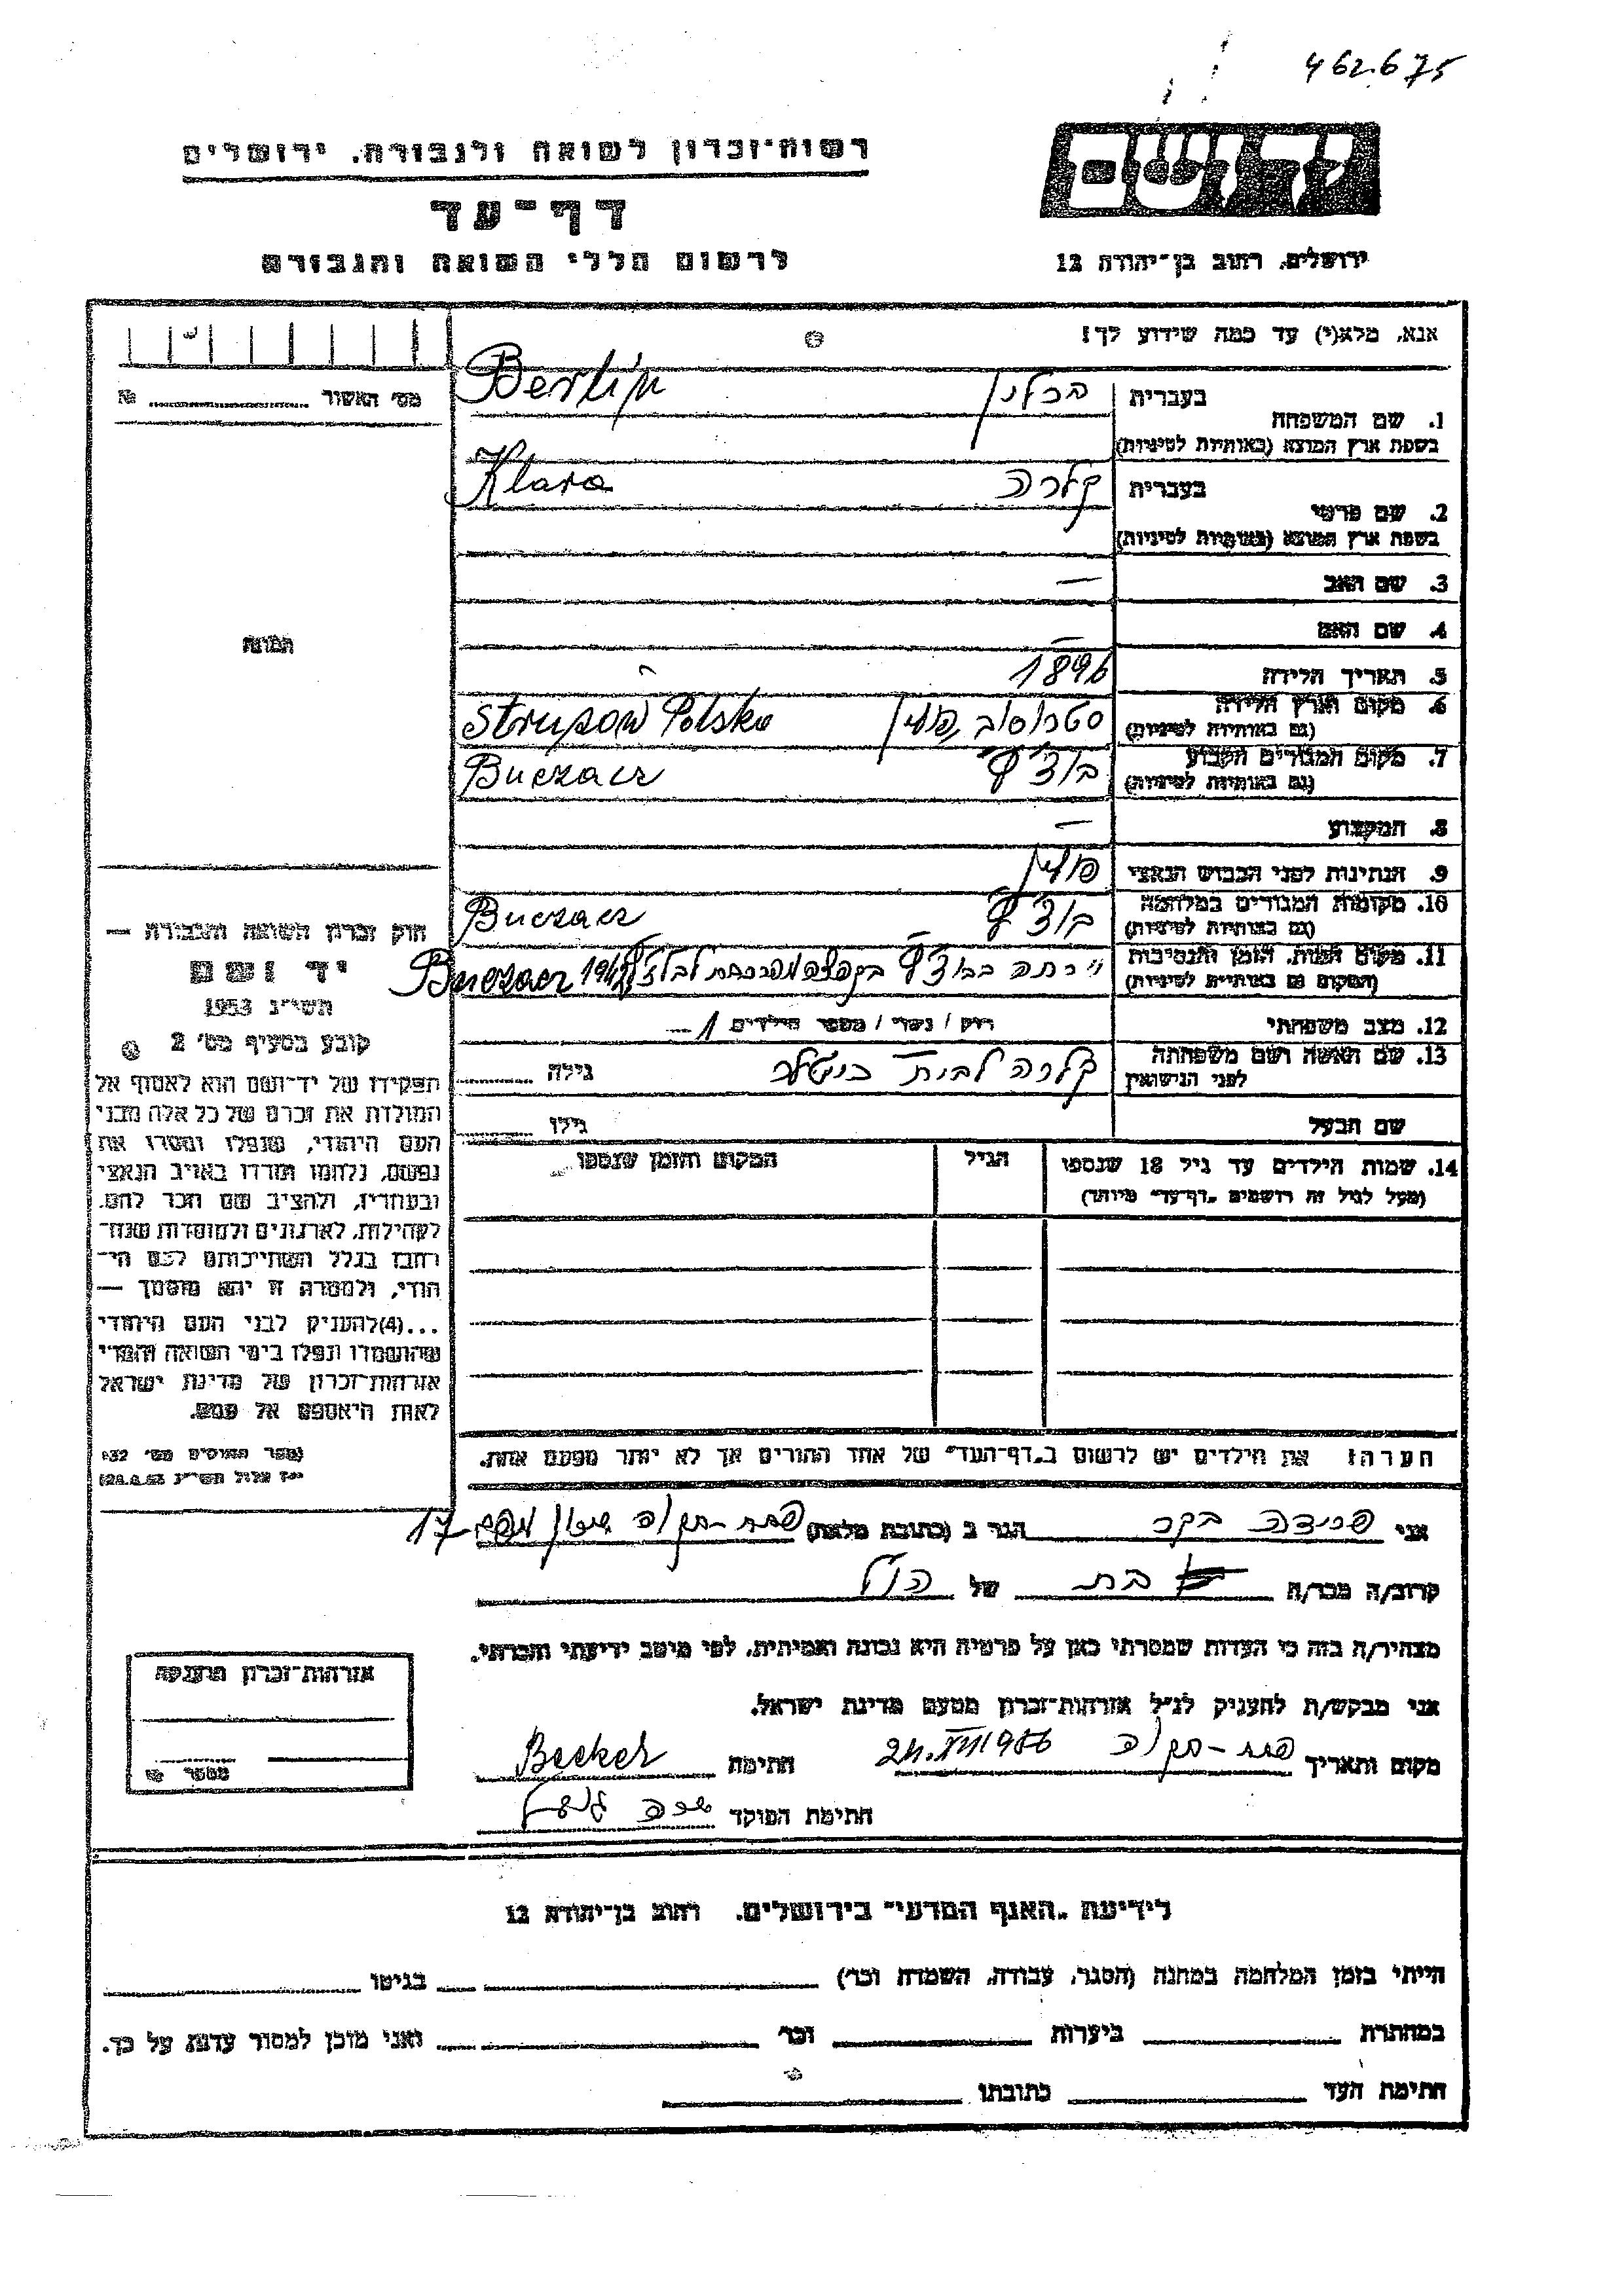 462.675
יד ושם
רשות-זכרון לשואה ולגבורה, ירושלים
דף-עד
לרשום חללי השואה והגבורה
ירושלים, רחוב בן-יהודה 12
אנא, מלא(י) עד כמה שידוע לך!
מס' האשור №
1. שם המשפחה
בעברית ברלין Berlin
בשפת ארץ המוצא (באותיות לטיניות)
2. שם פרטי
בעברית קלרה Klara
בשפת ארץ המוצא (באותיות לטיניות)
3. שם האב —
4. שם האם —
התמונה
5. תאריך הלידה 1896
6. מקום וארץ הלידה
(גם באותיות לטיניות) פולין Polska
7. מקום המגורים הקבוע
(גם באותיות לטיניות) בוצ'ץ' Buczacz
8. המקצוע —
9. הנתינות לפני הכבוש הנאצי פולין
10. מקומות המגורים במלחמה
(גם באותיות לטיניות) בוצ'ץ' Buczacz
11. מקום המות, הזמן והנסיבות
(המקום גם באותיות לטיניות) Buczacz
12. מצב משפחתי רווק / נשוי / מספר הילדים 1
13. שם האשה ושם משפחתה
לפני הנישואין קלרה לבית גילה
שם הבעל גילו
14. שמות הילדים עד גיל 18 שנספו הגיל המקום והזמן שנספו
(מעל לגיל זה רושמים "דף-עד" מיוחד)
חוק זכרון השואה והגבורה —
יד ושם
תשי"ג 1953
קובע בסעיף מס' 2
תפקידו של יד-ושם הוא לאסוף אל
המולדת את זכרם של כל אלה מבני
העם היהודי, שנפלו ומסרו את
נפשם, נלחמו ומרדו באויב הנאצי
ובעוזריו, ולהציב שם וזכר להם,
לקהילות, לארגונים ולמוסדות שנח-
רבו בגלל השתייכותם לעם הי-
הודי, ולמטרה זו יהא מוסמך —
...(4)להעניק לבני העם היהודי
שהושמדו ונפלו בימי השואה והמרי
אזרחות-זכרון של מדינת ישראל
לאות היאספם אל עמם.
הערה: את הילדים יש לרשום ב"דף-העד" של אחד ההורים אך לא יותר מפעם אחת.
אני פרידה בקר הגר ב (כתובת מלאה) פתח-תקוה 17
קרוב/ה מכר/ה בת של הנ"ל
מצהיר/ה בזה כי העדות שמסרתי כאן על פרטיה היא נכונה ואמיתית, לפי מיטב ידיעתי והכרתי.
אני מבקש/ת להעניק לנ"ל אזרחות-זכרון מטעם מדינת ישראל.
מקום ותאריך פתח-תקוה 24.VII 1956 חתימה Becker
חתימת הפוקד
אזרחות-זכרון מוענקה
מספר
לידיעת "האגף המדעי" בירושלים, רחוב בן-יהודה 12
הייתי בזמן המלחמה במחנה (הסגר, עבודה, השמדה וכו') בגיטו
במחתרת ביערות וכו' ואני מוכן למסור עדות על כך.
חתימת העד כתובתו